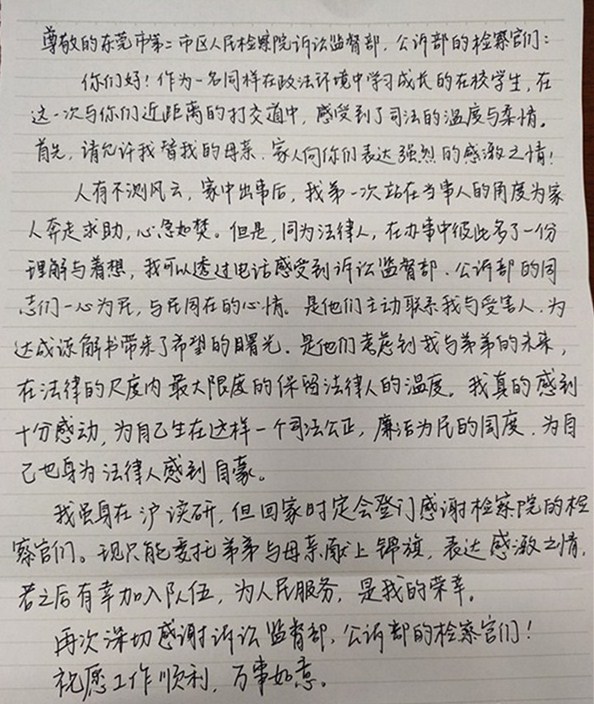 尊敬的东莞市第二市区人民检察院诉讼监督部、公诉部的检察官们：
你们好！作为一名同样在政法环境中学习成长的在校学生，在
这一次与你们近距离的打交道中，感受到了司法的温度与柔情。
首先，请允许我替我的母亲、家人向你们表达强烈的感激之情！
人有不测风云，家中出事后，我第一次站在当事人的角度为家
人奔走求助，心急如焚。但是，同为法律人，在办事中彼此多了一份
理解与着想，我可以透过电话感受到诉讼监督部、公诉部的同
志们一心为民，与民同在的心情。是他们主动联系我与受害人，为
达成谅解书带来了希望的曙光，是他们考虑到我与弟弟的未来，
在法律的尺度内最大限度的保留法律人的温度。我真的感到
十分感动，为自己生在这样一个司法公正，廉洁为民的国度，为自
己也身为法律人感到自豪。
我虽身在沪读研，但回家时定会登门感谢检察院的检
察官们。现只能委托弟弟与母亲献上锦旗，表达感激之情，
若之后有幸加入队伍，为人民服务，是我的荣幸。
再次深切感谢诉讼监督部、公诉部的检察官们！
祝愿工作顺利，万事如意。